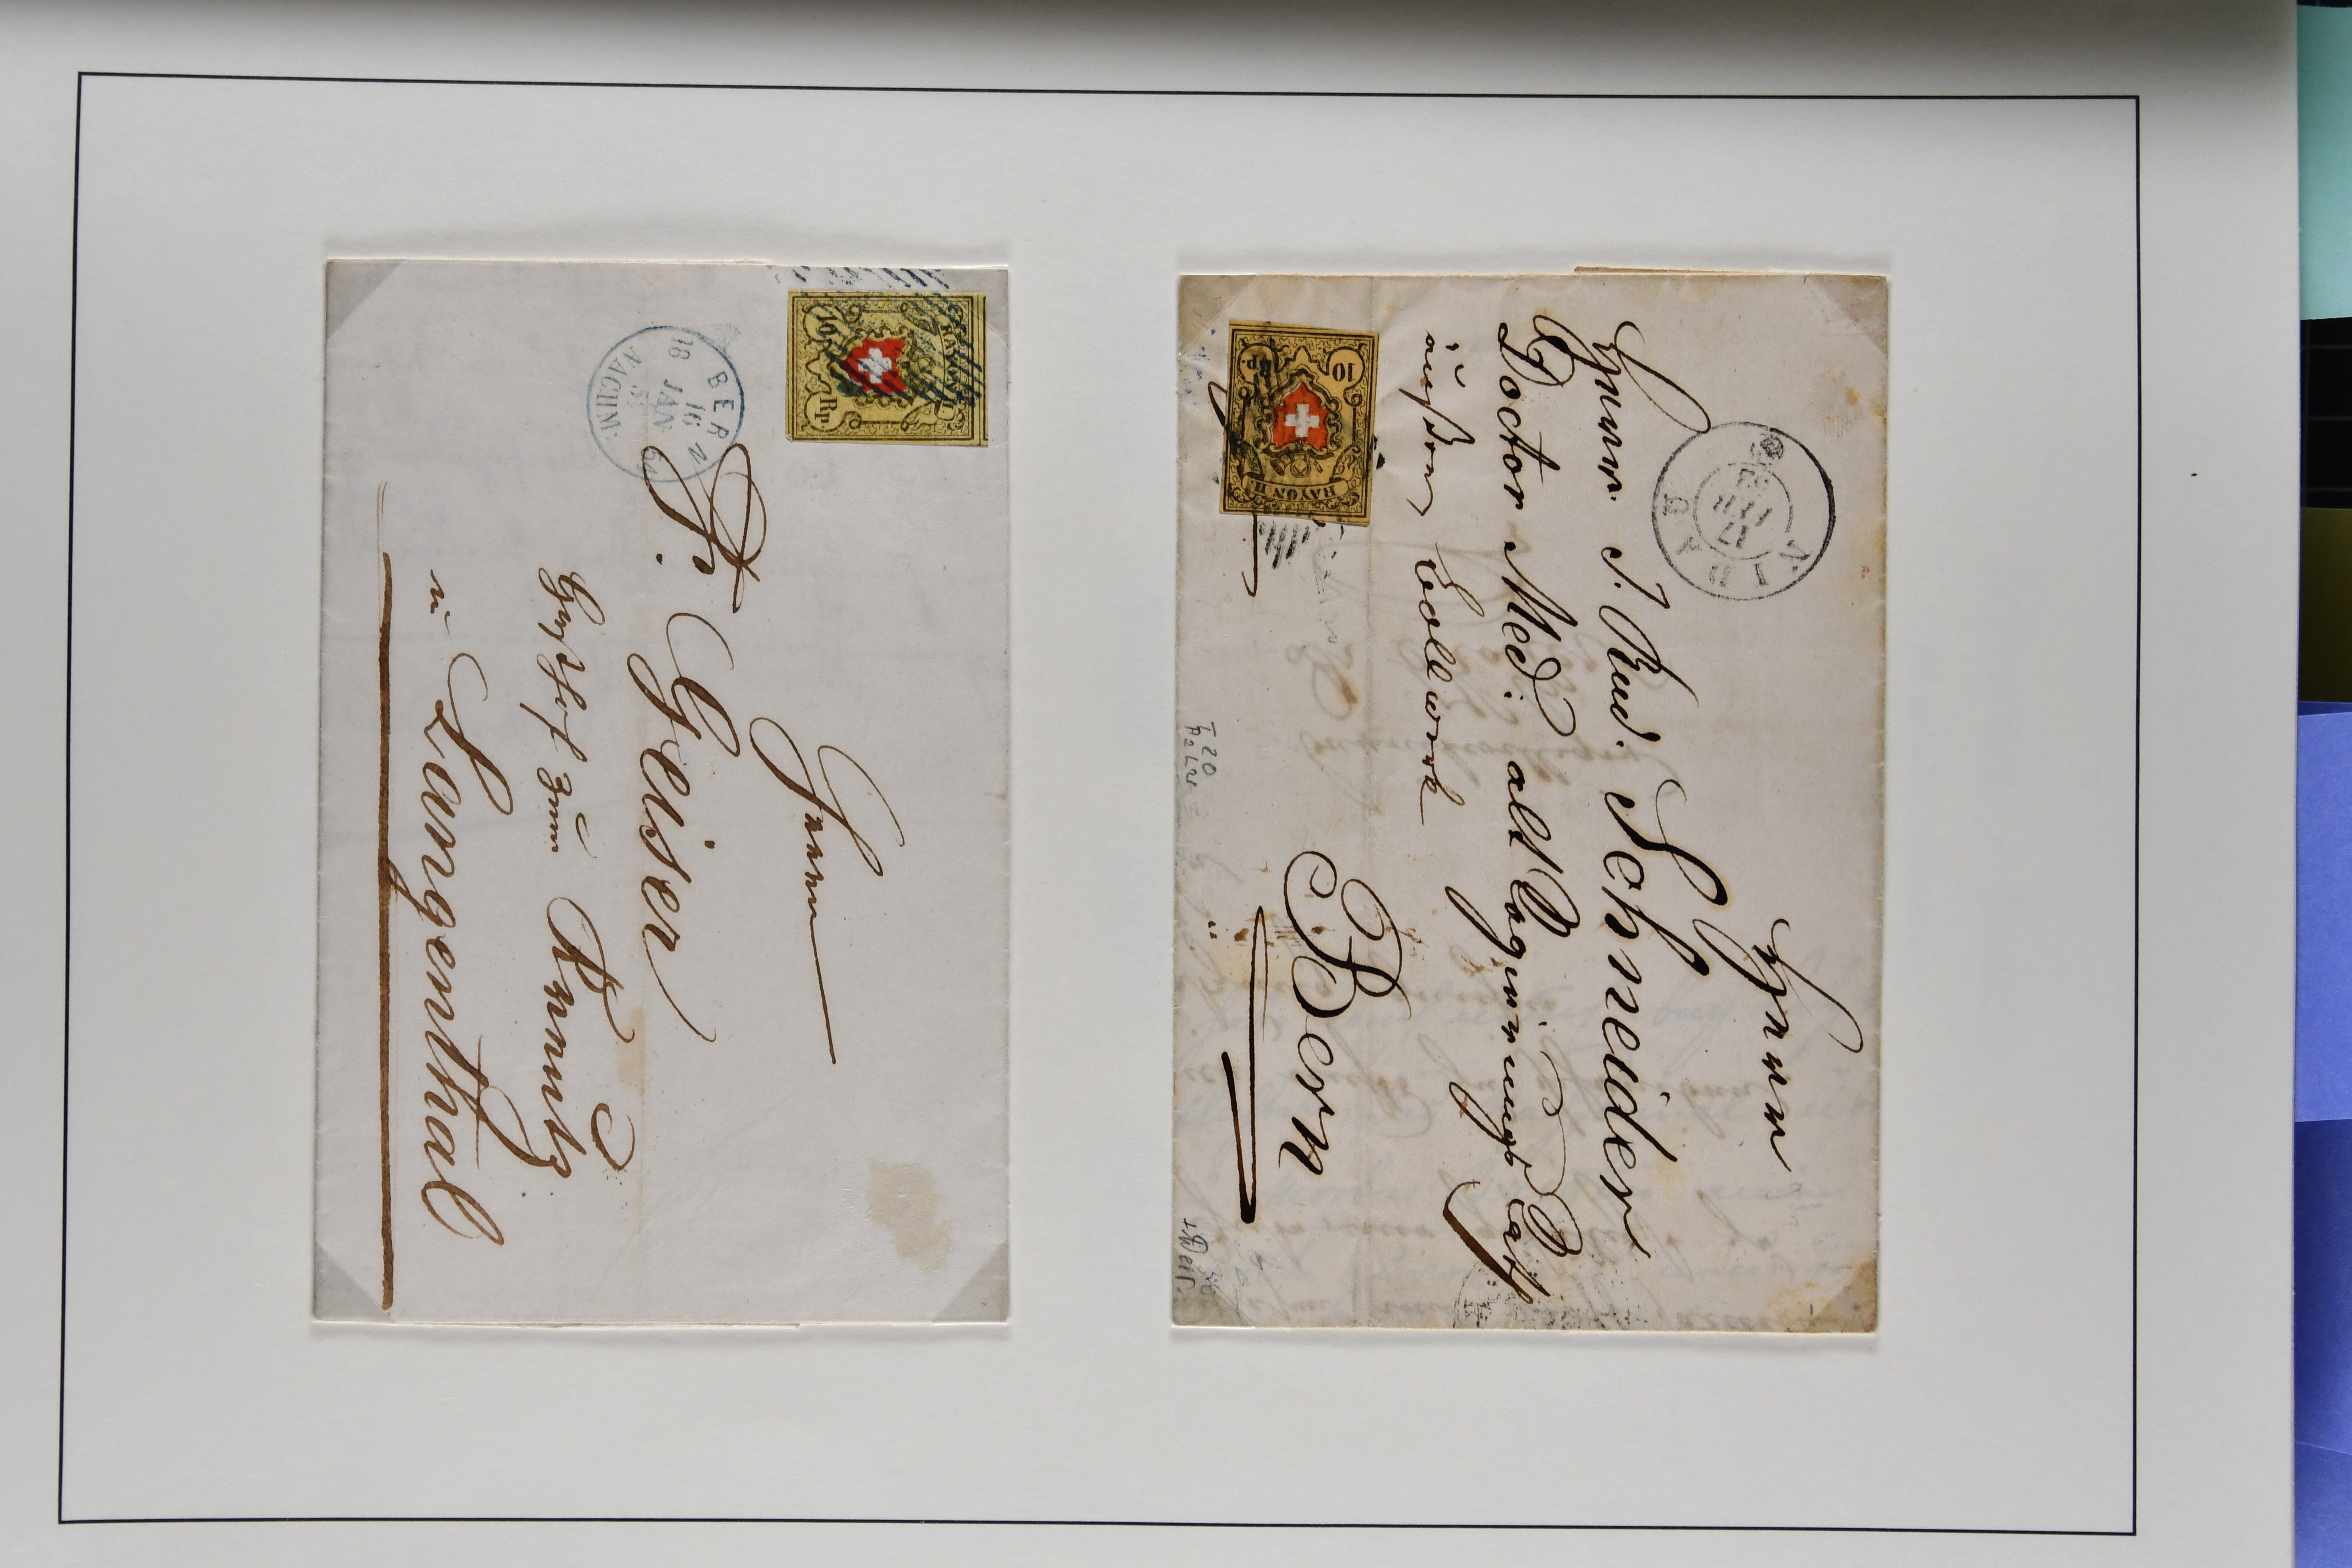 RAYON II.
10 Rp.
BERN
16 JAN
NACHM:
Herrn
Fr. Geiser
Gasthof zum Kreutz
in Langenthal
RAYON II.
10 Rp.
NIDAU
17
Herrn
Herrn J. Rud. Schneider
Doctor Med: alt Regierungs Rath
äußern Bollwerk
Bern
T. 20